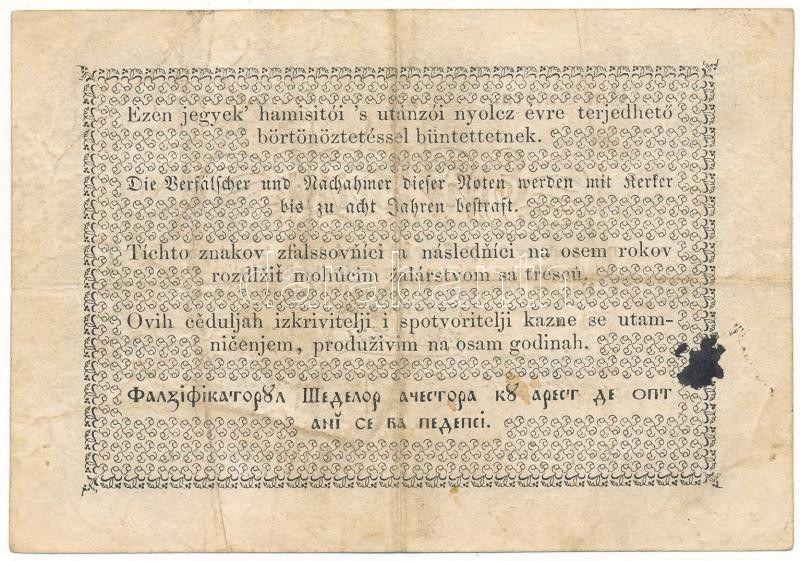 Ezen jegyek' hamisitói 's utánzói nyolcz évre terjedhető
börtönöztetéssel büntettetnek.
Die Verfälscher und Nachahmer dieser Noten werden mit Kerker
bis zu acht Jahren bestraft.
Tíchto znakov zfalssovňíci a následňíci na osem rokov
rozdlžiť mohúcim žalárstvom sa trescú.
Ovih cěduljah izkrivitelji i spotvoritelji kazne se utam-
ničenjem, produživim na osam godinah.
Фалꙁіфікаторꙋл Шеделор ачестора кꙋ арест де опт
анĭ се ва педепсі.
darabanth